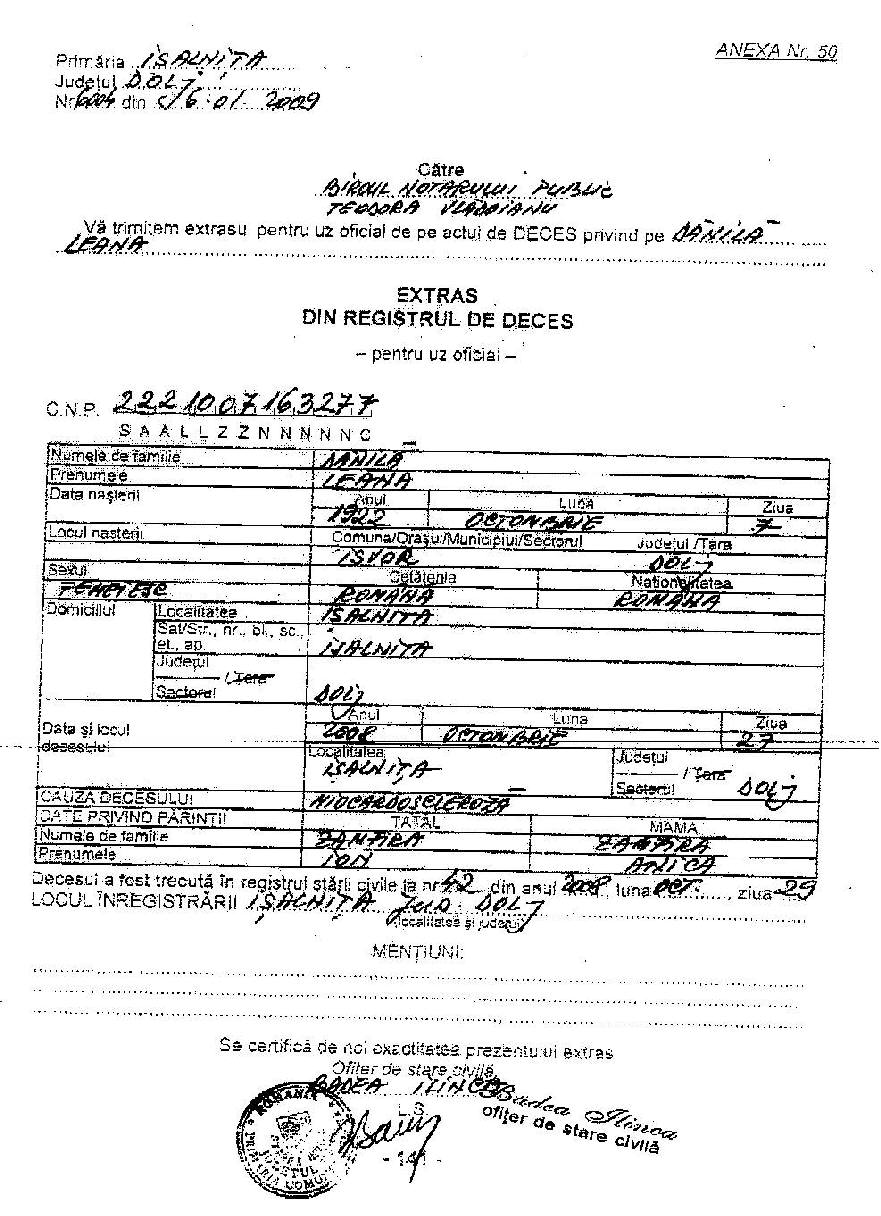 ANEXA Nr. 50
Primăria ISALNITA
Județul DOLJ
Nr 6004 din 6.01.2009
Către
BIROUL NOTARULUI PUBLIC
TEODORA VLADOIANU
Vă trimitem extrasu pentru uz oficial de pe actul de DECES privind pe DĂNILĂ
LEANA
EXTRAS
DIN REGISTRUL DE DECES
– pentru uz oficial –
C.N.P. 2221007163277
S A A L L Z Z N N N N N C
Numele de familie DANILĂ
Prenumele LEANA
Data nașterii Anul Luna Ziua
1922 OCTOMBRIE 7
Locul nașterii Comuna/Orașul/Municipiul/Sectorul Județul /Țara
ISVOR DOLJ
Sexul Cetățenia Naționalitatea
FEMEIESC ROMÂNA ROMÂNA
Domiciliul Localitatea ISALNITA
Sat/Str., nr., bl., sc., et., ap. ISALNITA
Județul
/ Țara
Sectorul DOLJ
Data și locul decesului Anul Luna Ziua
2008 OCTOMBRIE 27
Localitatea Județul
ISALNIȚA / Țara
Sectorul DOLJ
CAUZA DECESULUI MIOCARDOSCLEROZĂ
DATE PRIVIND PĂRINȚII TATĂL MAMA
Numele de familie ZAMFIRA ZAMFIRA
Prenumele ION ANICA
Decesul a fost trecută în registrul stării civile la nr. 42 din anul 2008, luna OCT., ziua 29
LOCUL ÎNREGISTRĂRII IȘALNIȚA Jud. DOLJ
(localitatea și județul)
MENȚIUNI:
Se certifică de noi exactitatea prezentului extras
Ofițer de stare civilă,
BADEA ILINCA
Badea Ilinca
ofițer de stare civilă
L.S.
ROMANIA
JUDETUL
PRIMARIA COMUNEI
- 141 -